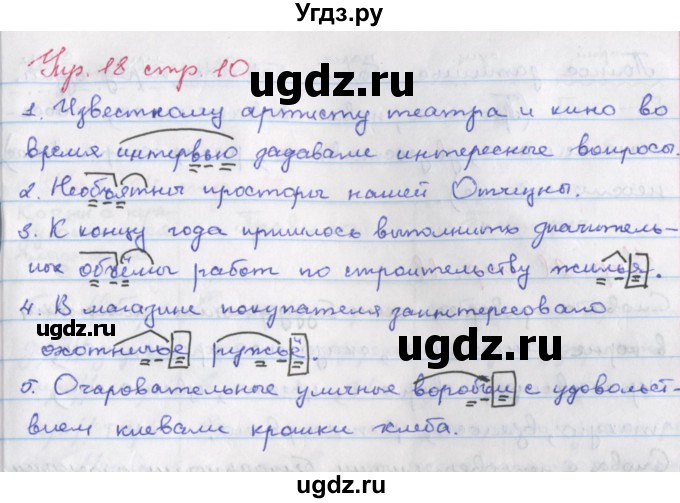 Угдз.ру
Упр. 18 стр. 10
ugdz.ru
1. Известному артисту театра и кино во
время интервью задавали интересные вопросы.
ugdz.ru
2. Необъятны просторы нашей Отчизны.
3. К концу года пришлось выполнить значитель-
ных объёмы работ по строительству жилья.
ugdz.ru
4. В магазине покупателя заинтересовало
охотничье ружьё.
ugdz.ru
ugdz.ru
5. Очаровательные уличные воробьи с удовольст-
вием клевали крошки хлеба.
ugdz.ru
Угдз.ру